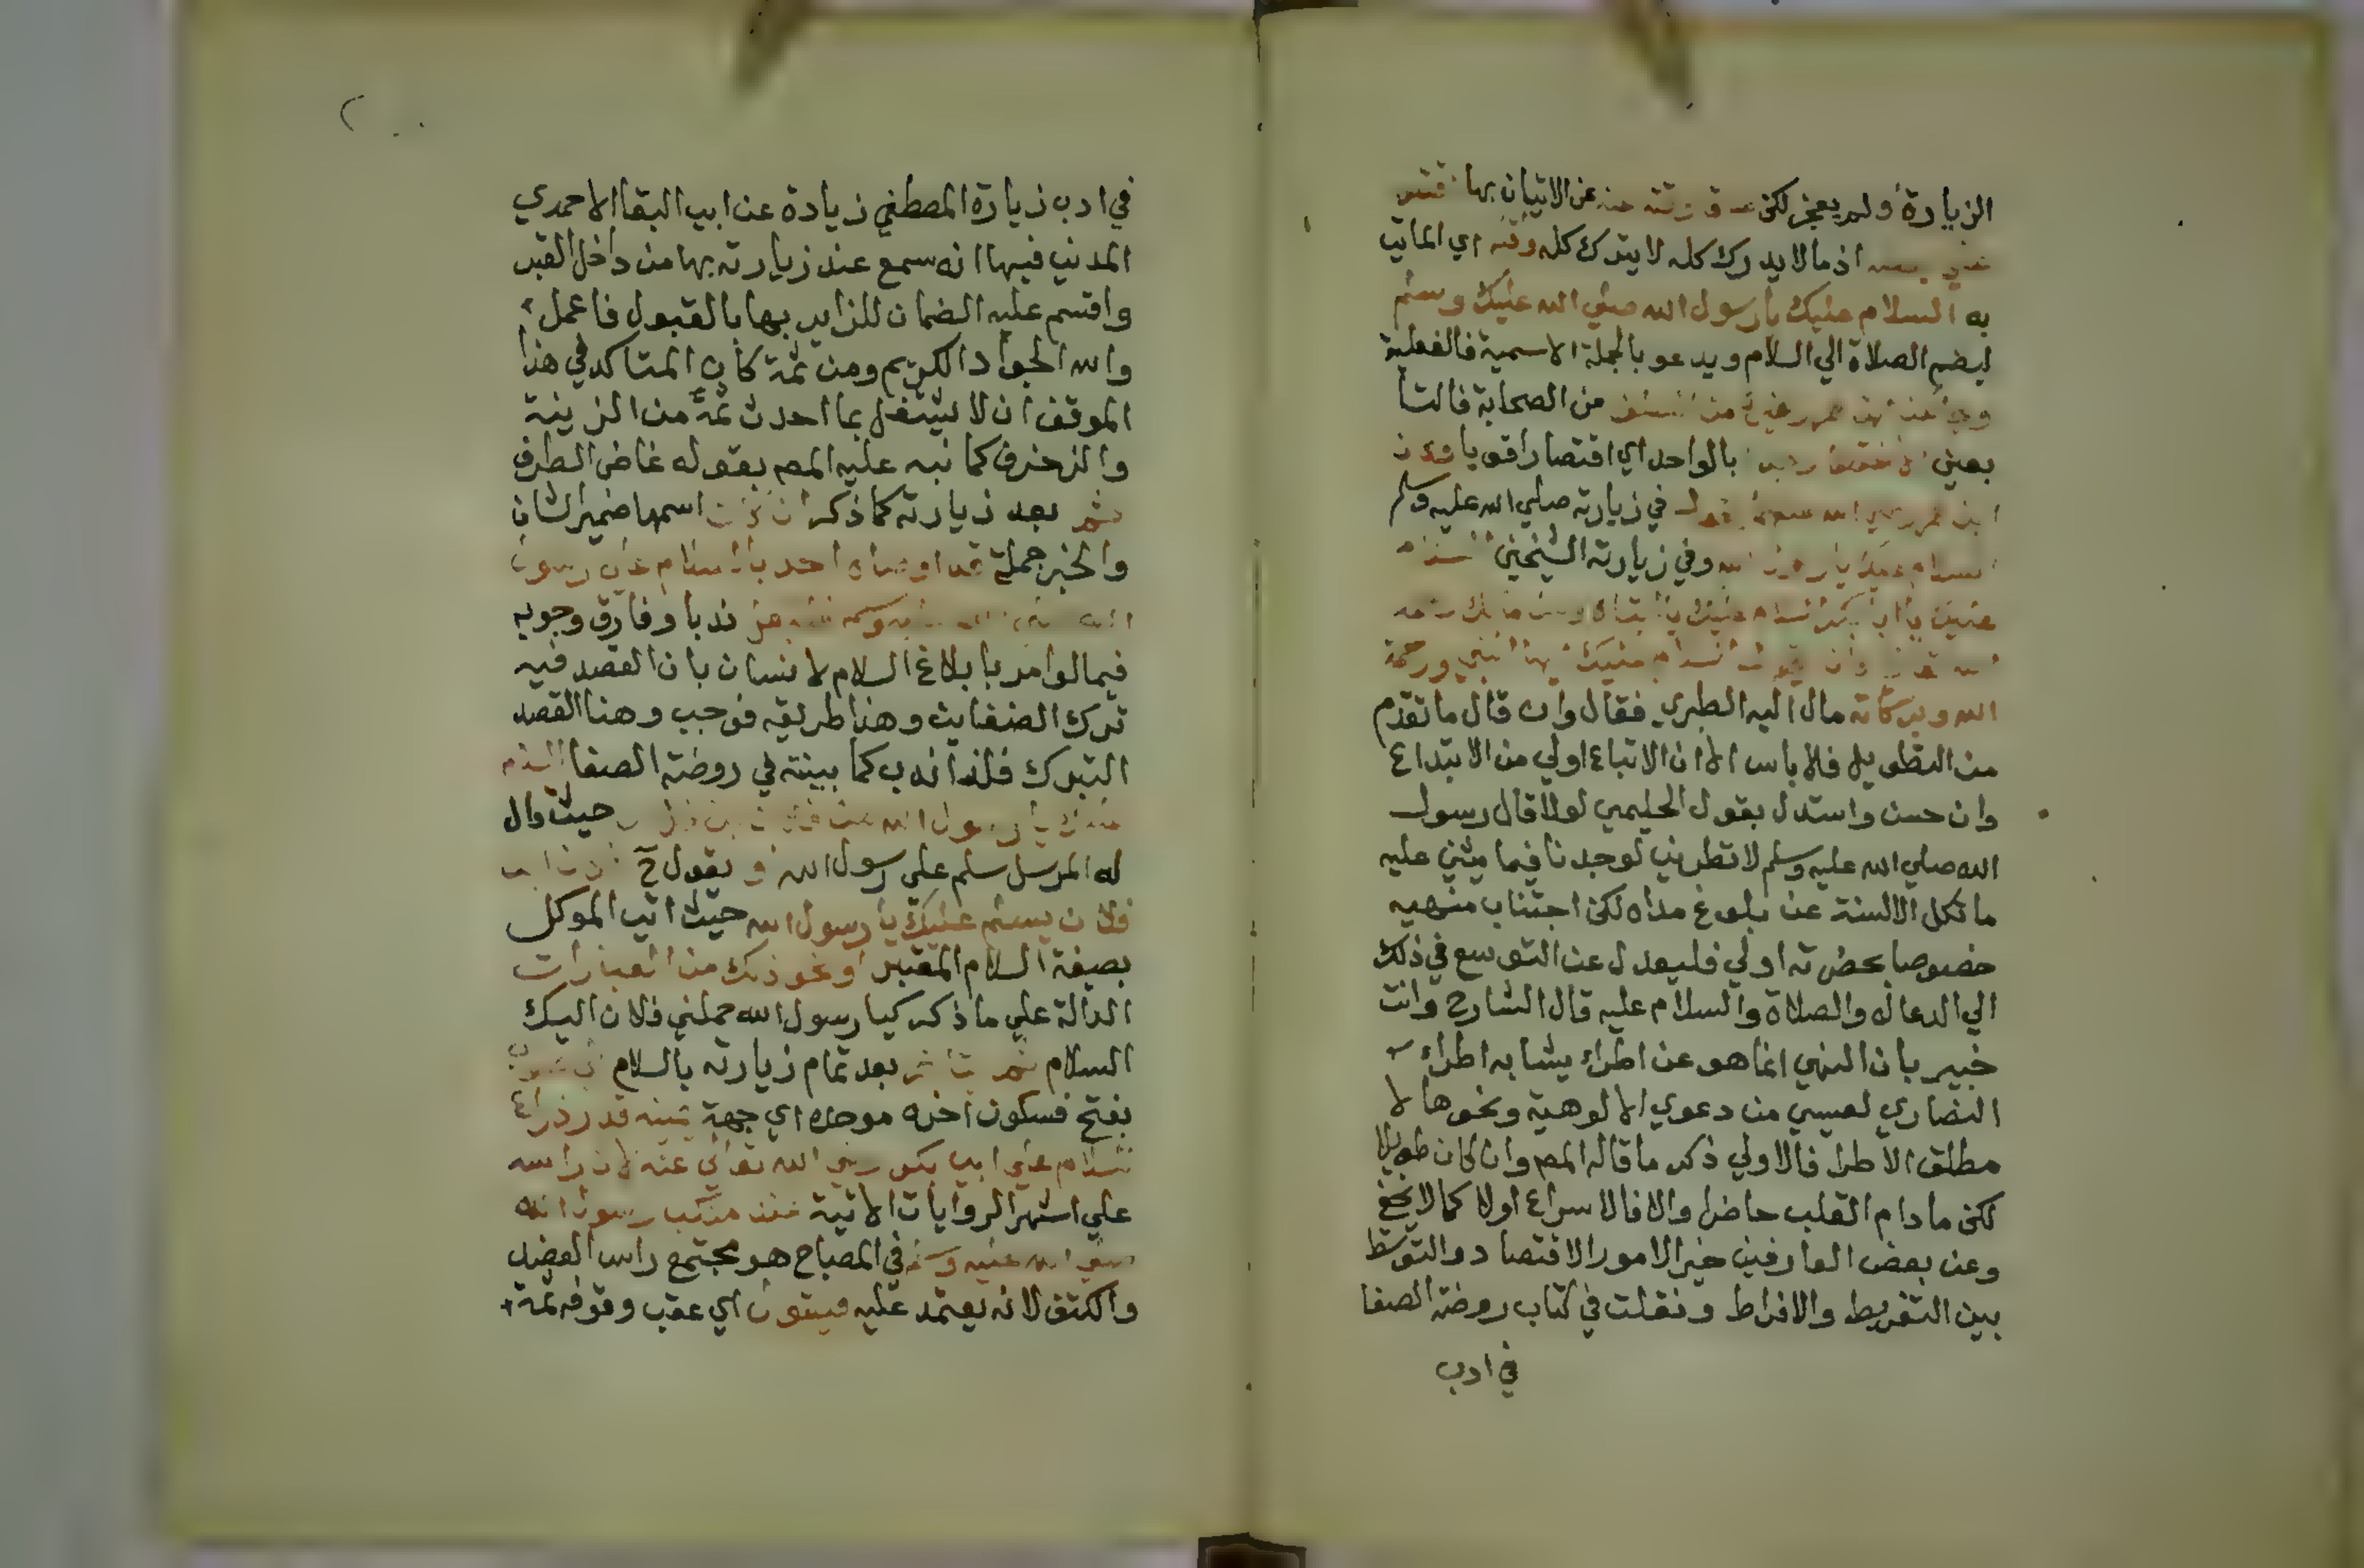 الزيارة ولم يعجز لكن عن الاتيان بها
اذ مالا يدرك كله لا يترك كله واقله اي الماتي
به السلام عليك يا رسول الله صلي الله عليك وسلم
ليضم الصلاة الي السلام ويدعو بالجملة الاسمية فالفعلية
من السلف من الصحابة فالتا
بعين بالواحد اي اقتصارا قويا
في زيارته صلي الله عليه وسلم
وفي زيارته الشيخين السلام
عليك يا ابا بكر السلام عليك يا ابتاه
وان يقول السلام عليك ايها النبي ورحمة
الله وبركاته مال اليه الطبري فقال وان قال ما تقدم
من التطويل فلا باس الا ان الاتباع اولي من الابتداع
وان حسن واستدل بقول الحليمي لولا قال رسول
الله صلي الله عليه وسلم لا تطروني لوجدنا فيما يثني عليه
ما تكل الالسنة عن بلوغ مداه لكن اجتناب منهيه
خصوصا بحضرته اولي فليعدل عن التوسع في ذلك
الي الدعا له والصلاة والسلام عليه قال الشارح وانت
خبير بان النهي انما هو عن اطراء يشابه اطراء
النصاري لعيسي من دعوي الالوهية ونحوها لا
مطلق الاطرا فالاولي ذكر ما قاله المص وان كان طويلا
لكن ما دام القلب حاضرا والا فالاسراع اولا كما لا يخفي
وعن بعض العارفين خير الامور الاقتصاد والتوسط
بين التفريط والافراط ونقلت في كتاب روضة الصفا
في ادب
في ادب زيارة المصطفي زيادة عن ابي البقا الاحمدي
المدني فيها انه سمع عند زيارته بها من داخل القبر
واقسم عليه الضمان للزاير بها بالقبول فاعمل
والله الجواد الكريم ومن ثمة كان المتاكد في هذا
الموقف ان لا يشتغل بما احدث ثمة من الزينة
والزخرف كما نبه عليه المص بقوله غاض الطرف
ثم بعد زيارته كما ذكر ان كان اسمها ضمير الشان
والخبر جملة قد اوصاه احد بالسلام علي رسول
الله صلي الله عليه وسلم ندبا وفارق وجوبه
فيما لو امر بابلاغ السلام لانسان بان القصد فيه
ترك الضغاين وهذا طريقه فوجب وهنا القصد
التبرك فلذا ندب كما بينته في روضة الصفا السلام
عليك يا رسول الله من فلان بن فلان حيث قال
له المرسل سلم علي رسول الله او يقول ح
فلان يسلم عليك يا رسول الله حيث اتي الموكل
بصيغة السلام المعتبر او نحو ذلك من العبارات
الدالة علي ما ذكر كيا رسول الله حملني فلان اليك
السلام ثم يتاخر بعد تمام زيارته بالسلام الي صوب
بفتح فسكون اخره موحده اي جهة يمينه قدر ذراع
للسلام علي ابي بكر رضي الله تعالي عنه لان راسه
علي اشهر الروايات الاتية عند منكب رسول الله
صلي الله عليه وسلم في المصباح هو مجتمع راس العضد
والكتف لانه يعتمد عليه فيقول اي عقب وقوفه ثمة